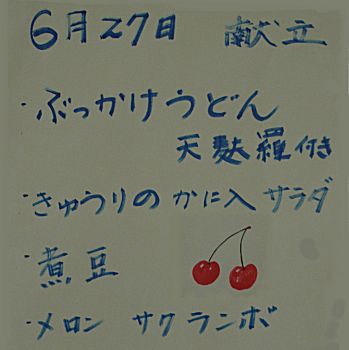 6月27日 献立
・ぶっかけうどん
天麩羅付き
・きゅうりのかに入サラダ
・煮豆
・メロン サクランボ